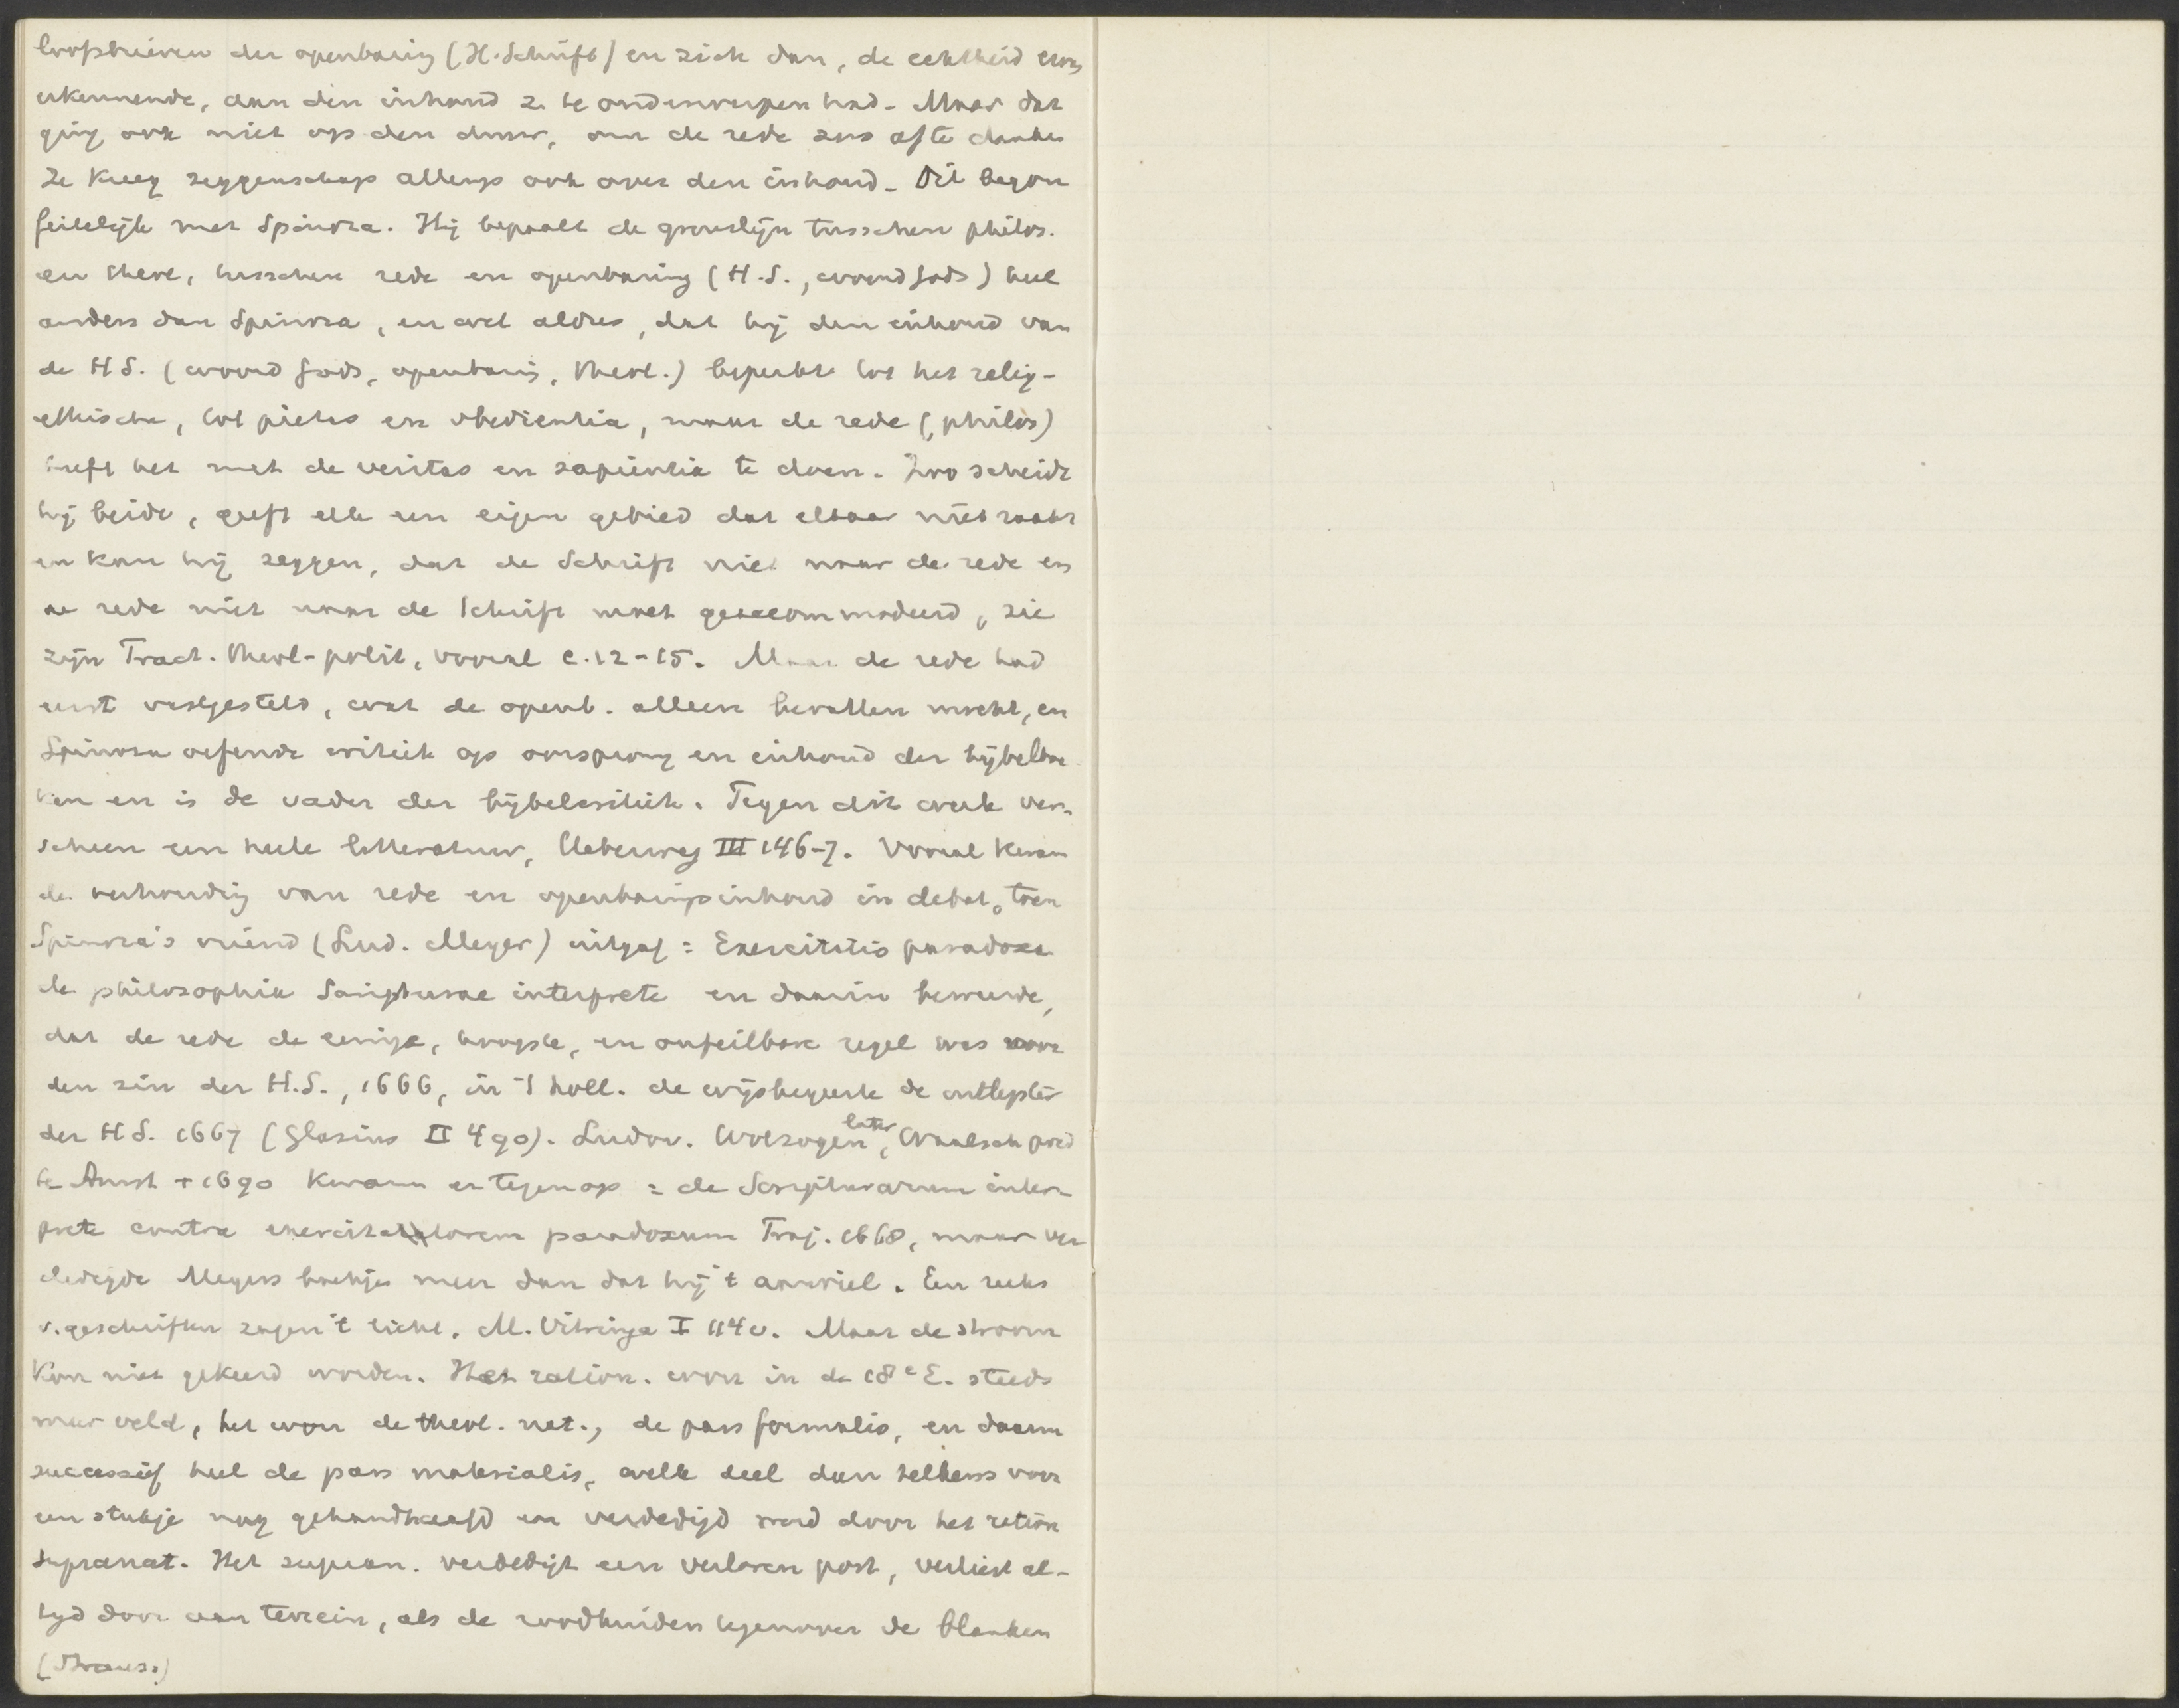 loofsbrieven der openbaring (H. Schrift) en zich dan, de echtheid eens
erkennende, aan den inhoud z. te onderwerpen had. Maar dat
ging ook niet op den duur, om de rede zoo af te danken
Ze kreeg zeggenschap allengs ook over den inhoud. Dit begon
feitelijk met Spinoza. Hij bepaalt de grenslijn tusschen philos.
en theol., tusschen rede en openbaring (H.S., woord Gods) heel
anders dan Spinoza, en wel aldus, dat hij den inhoud van
de H S. (woord Gods, openbaring, theol.) beperkte tot het relig-
ethische, tot pietas en obedientia, maar de rede (philos)
heeft het met de veritas en sapientia te doen. Zoo scheidt
hij beide, geeft elk een eigen gebied dat elkaar niet raakt
en kan hij zeggen, dat de Schrift niet naar de rede en
de rede niet naar de Schrift moet geaccommodeerd, zie
zijn Tract. theol-polit, vooral c. 12-15. Maar de rede had
eerst vastgesteld, wat de openb. alleen bevatten mocht, en
Spinoza oefende critiek op oorsprong en inhoud der bijbelboe
ken en is de vader der bijbelcritiek. Tegen dit werk ver-
scheen een heele litteratuur, Ueberweg III 146-7. Vooral kwam
de verhouding van rede en openbaringsinhoud in debat, toen
Spinoza's vriend (Lud. Meyer) uitgaf: Exercitatio paradoxa
de philosophia Scripturae interprete en daarin beweerde,
dat de rede de eenige, hoogste, en onfeilbare regel was voor
den zin der H.S., 1666, in 't holl. de wijsbegeerte de uitlegster
der H S. 1667 (Glasius II 490). Ludov. Wolzogen, later Waalsch pred
te Amst + 1690 kwam er tegen op: de Scripturarum inter-
prete contra exercitatorem paradoxum Traj. 1668, maar ver
dedigde Meyers boekje meer dan dat hij 't aanviel. Een reeks
v. geschriften zagen 't licht. M. Vitringa I 114 v. Maar de stroom
kon niet gekeerd worden. Het ration. won in de 18e E. steeds
meer veld, het won de theol. nat., de pars formalis, en daarin
successief heel de pars materialis, welk deel dan telkens voor
een stukje nog gehandhaafd en verdedigd werd door het ration
supranat. Het supran. verdedigt een verloren post, verliest al-
tijd door aan terrein, als de roodhuiden tegenover de blanken
(Strauss)